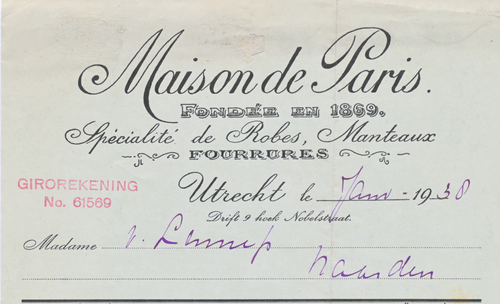 Maison de Paris.
FONDÉE EN 1869.
Spécialité de Robes, Manteaux
FOURRURES
GIROREKENING
No. 61569
Utrecht le Jan - 1938
Drift 9 hoek Nobelstraat.
Madame v. Lennep
Naarden